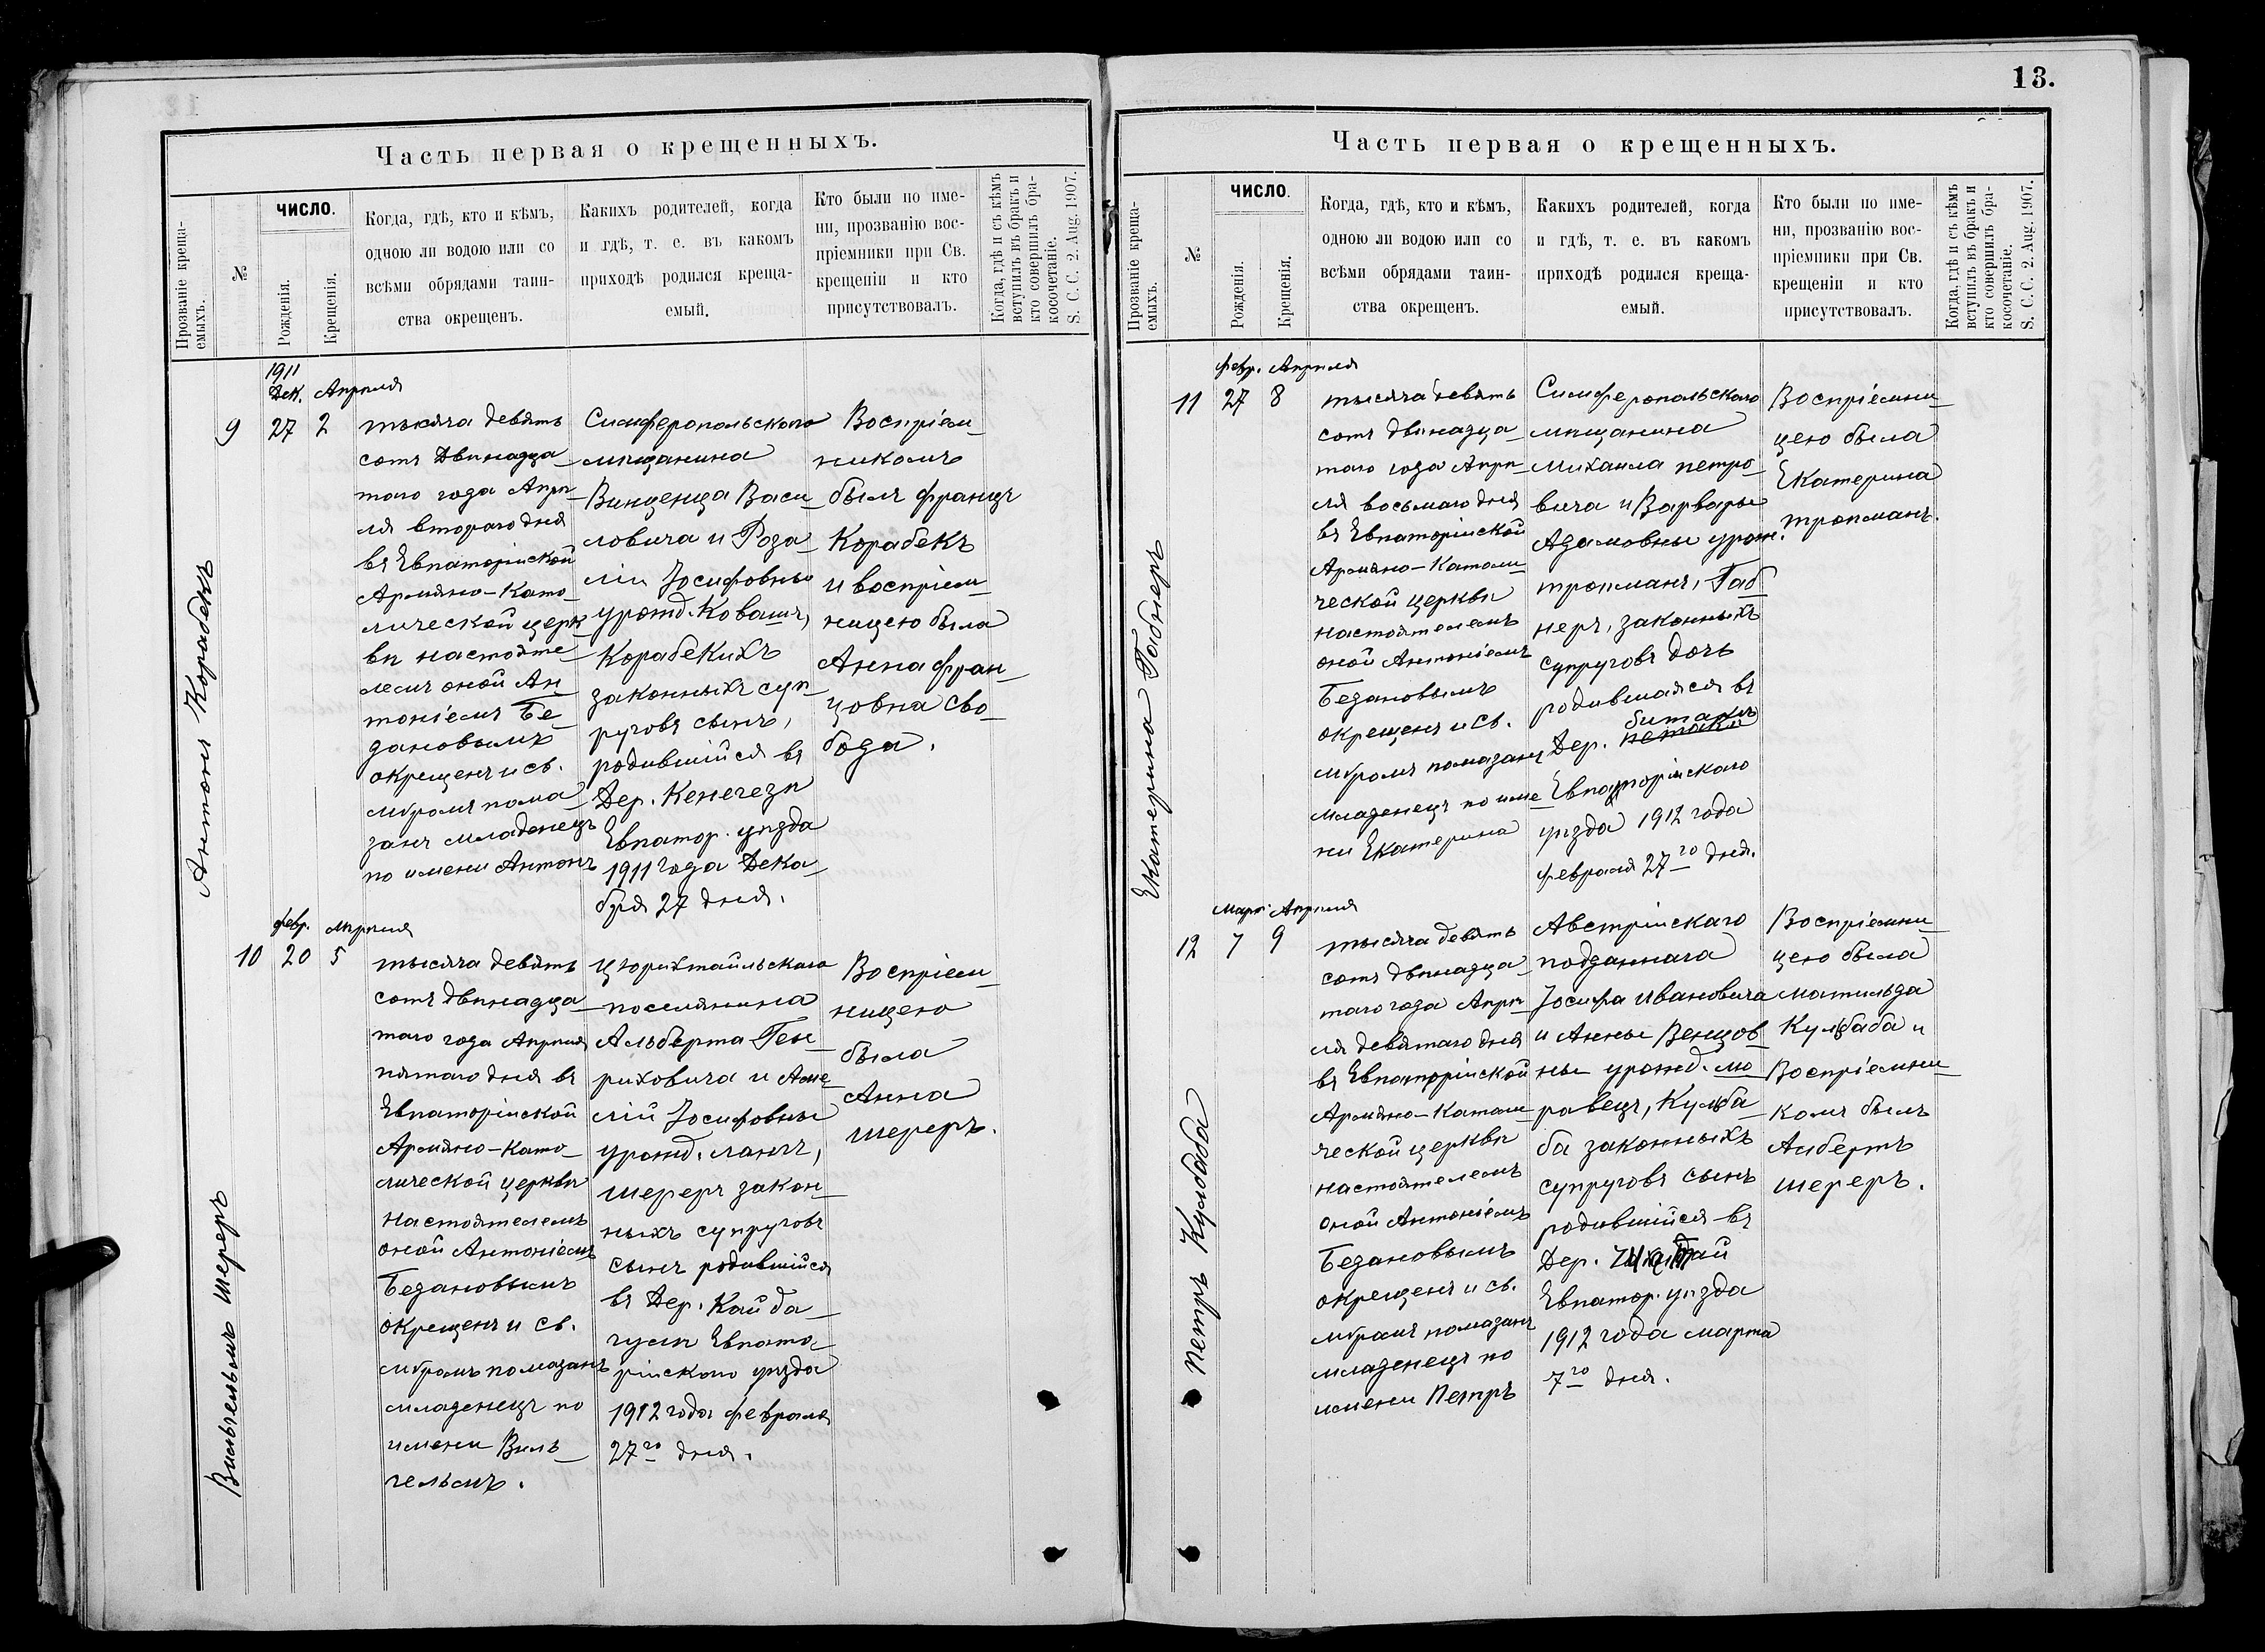 Часть первая о крещенныхъ.
Прозваніе креща-
емыхъ.
№
ЧИСЛО.
Рожденія.
Крещенія.
Когда, гдѣ, кто и кѣмъ,
одною ли водою или со
всѣми обрядами таин-
ства окрещенъ.
Какихъ родителей, когда
и гдѣ, т. е. въ какомъ
приходѣ родился креща-
емый.
Кто были по име-
ни, прозванію вос-
пріемники при Св.
крещеніи и кто
присутствовалъ.
Когда, гдѣ и съ кѣмъ
вступилъ въ бракъ и
кто совершилъ бра-
косочетаніе.
S. C. C. 2. Aug. 1907.
Антонъ Корабекъ
9
1911
Дек.
27
Апрѣля
2
тысяча девять
сотъ Двѣнадца
таго года Апрѣ
ля втораго дня
въ Евпаторійской
Армяно-Като
лической церк
ви настояте
лемъ оной Ан
тоніемъ Бе
зановымъ
окрещенъ и св.
мѵромъ пома
занъ младенецъ
по имени Антонъ
Симферопольскаго
мѣщанина
Винценца Васи
ловича и Роза
ліи Іосифовны
урожд. Ковашъ,
Корабекихъ
законныхъ суп
руговъ сынъ,
родившійся въ
Дер. Кенегезѣ
Евпатор. уѣзда
1911 года Дека
бря 27 дня.
Воспріем
никомъ
былъ францъ
Корабекъ
и воспріем
ницею была
Анна фран
цовна Сво
бода.
Вильгельмъ шереръ
10
февр.
20
Апрѣля
5
тысяча девять
сотъ двѣнадца
таго года Апрѣля
пятаго дня въ
Евпаторійской
Армяно-Като
лической церкви
настоятелемъ
оной Антоніемъ
Безановымъ
окрещенъ и св.
мѵромъ помазанъ
младенецъ по
имени Виль
гельмъ.
Цюрихтайльскаго
поселянина
Альберта Ген
риховича и Аме
лій Іосифовны
урожд. лангъ,
шереръ закон
ныхъ супруговъ
сынъ родившійся
въ Дер. Кайда
гулѣ Евпато
рійскаго уѣзда
1912 года февраля
27го дня.
Воспріем
ницею
была
Анна
шереръ.
13.
Часть первая о крещенныхъ.
Прозваніе креща-
емыхъ.
№
ЧИСЛО.
Рожденія.
Крещенія.
Когда, гдѣ, кто и кѣмъ,
одною ли водою или со
всѣми обрядами таин-
ства окрещенъ.
Какихъ родителей, когда
и гдѣ, т. е. въ какомъ
приходѣ родился креща-
емый.
Кто были по име-
ни, прозванію вос-
пріемники при Св.
крещеніи и кто
присутствовалъ.
Когда, гдѣ и съ кѣмъ
вступилъ въ бракъ и
кто совершилъ бра-
косочетаніе.
S. C. C. 2. Aug. 1907.
Екатерина Габнеръ
11
февр.
27
Апрѣля
8
тысяча девять
сотъ двѣнадца
таго года Апрѣ
ля восьмаго дня
въ Евпаторійской
Армяно-Католи
ческой церкви
настоятелемъ
оной Антоніемъ
Безановымъ
окрещенъ и св.
мѵромъ помазанъ
младенецъ по име
ни Екатерина
Симферопольскаго
мѣщанина
Михаила петро
вича и Варвары
Адамовны урож.
тропманъ, Габ
неръ, законныхъ
супруговъ дочь
родившаяся въ
Дер.
Евпаторійскаго
уѣзда 1912 года
февраля 27го дня.
Воспріемни
цею была
Екатерина
тропманъ.
Петръ Кульбаба
12
Март.
7
Апрѣля
9
тысяча девять
сотъ двѣнадца
таго года Апрѣ
ля девятаго дня
въ Евпаторійской
Армяно-Католи
ческой церкви
настоятелемъ
оной Антоніемъ
Безановымъ
окрещенъ и св.
мѵромъ помазанъ
младенецъ по
имени Петръ
Австрійскаго
подданнаго
Іосифа ивановича
и Анны Венцов
ны урожд. мо
равецъ, Кульба
ба законныхъ
супруговъ сынъ
родившійся въ
Дер.
Евпатор. уѣзда
1912 года марта
7го дня.
Воспріемни
цею была
матильда
Кульбаба и
Воспріемни
комъ былъ
Албертъ
шереръ.